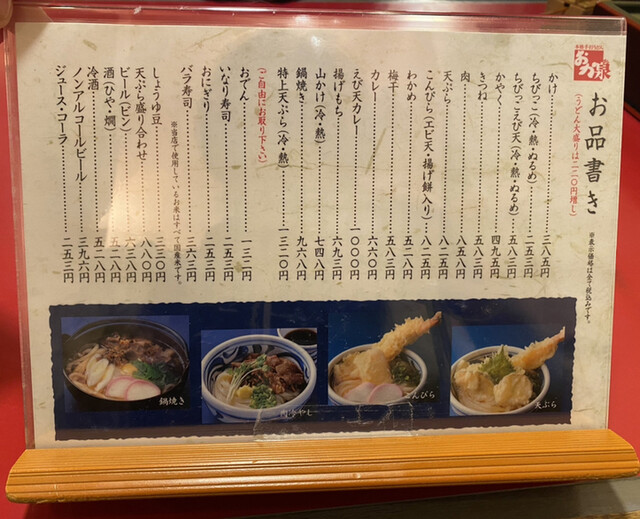 本格手打うどん
おか泉
お品書き
(うどん大盛りは二二〇円増し)
※表示価格は全て税込みです。
かけ……三八五円
ちびっこ(冷・熱・ぬるめ)……二五三円
ちびっこえび天(冷・熱・ぬるめ)……五八三円
かやく……四九五円
きつね……五八三円
肉……八五八円
天ぷら……八二五円
こんぴら(エビ天・揚げ餅入り)……八二五円
わかめ……五二八円
梅干……五八三円
カレー……六六〇円
えび天カレー……一〇〇〇円
揚げもち……六九三円
山かけ(冷・熱)……七四八円
鍋焼き……九六八円
特上天ぷら(冷・熱)……一三二〇円
(ご自由にお取り下さい)
おでん……一三二円
いなり寿司……二五三円
おにぎり……二五三円
※当店で使用しているお米はすべて国産米です。
バラ寿司……三六三円
しょうゆ豆……三三〇円
天ぷら盛り合わせ……八八〇円
ビール(ビン)……六三八円
酒(ひや・燗)……五二八円
冷酒……五二八円
ノンアルコールビール……三九六円
ジュース・コーラ……二五三円
鍋焼き
こんぴら
天ぷら